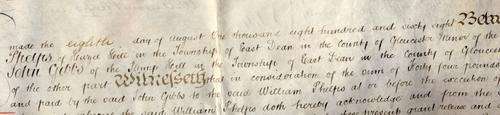 made the eighth day of August One thousand eight hundred and sixty eight Betw
Phelps of Hill in the Township of East Dean in the County of Gloucester Miner of the
John Gibbs of the Hill in the Township of East Dean in the County of Gloucester
of the other part Witnesseth that in consideration of the sum of sixty four pounds
and paid by the said John Gibbs to the said William Phelps at or before the execution
the said William Phelps doth hereby acknowledge and from the
present grant release and